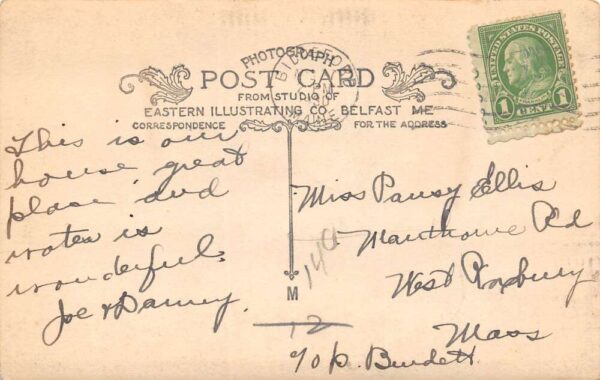 PHOTOGRAPH
POST CARD
FROM STUDIO OF
EASTERN ILLUSTRATING CO. BELFAST ME
CORRESPONDENCE
FOR THE ADDRESS
This is our
house, great
place and
water is
wonderful.
Joe & Danny.
Miss Pansy Ellis
Manthorne Rd
West Roxbury
Mass
c/o P. Burdett
149
M
12
UNITED STATES POSTAGE
FRANKLIN
1 CENT 1
BIDDEFORD
MAINE